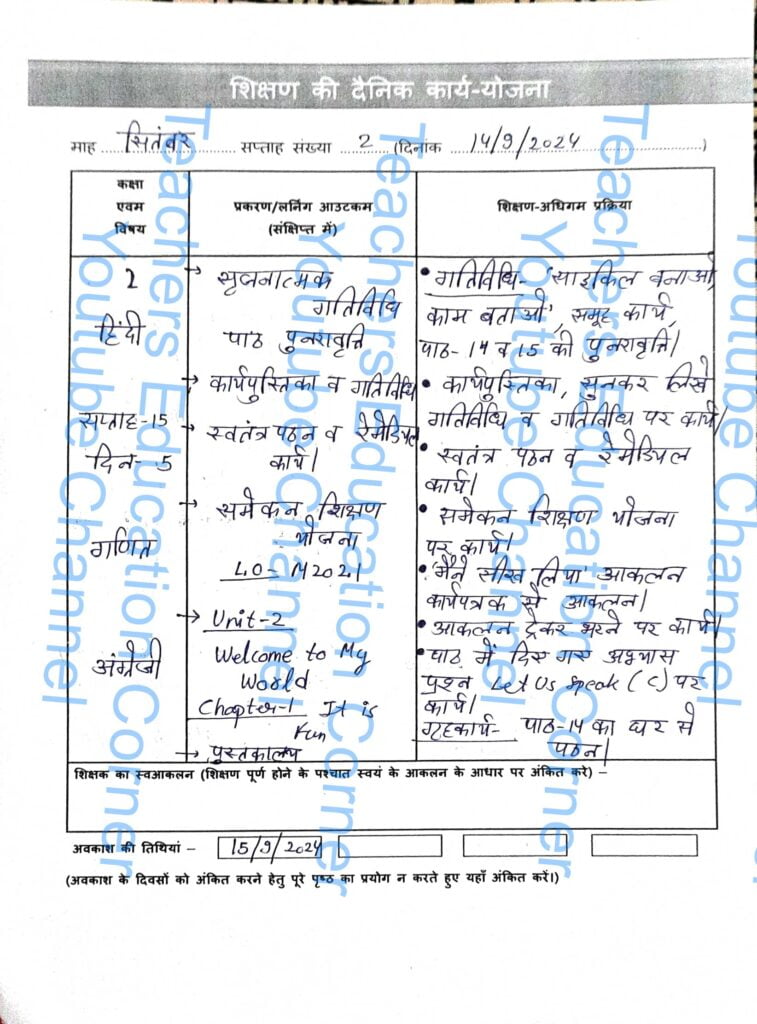 शिक्षण की दैनिक कार्य-योजना
माह सितंबर सप्ताह संख्या 2 (दिनांक 14/9/2024)
कक्षा
एवम
विषय
प्रकरण/लर्निंग आउटकम
(संक्षिप्त में)
शिक्षण-अधिगम प्रक्रिया
2
हिंदी
सप्ताह-15
दिन-5
→ सृजनात्मक
गतिविधि
पाठ पुनरावृत्ति
→ कार्यपुस्तिका व गतिविधि
→ स्वतंत्र पठन व रेमेडियल
कार्य।
• गतिविधि- 'साइकिल बनाओ,
काम बताओ', समूह कार्य,
पाठ-14 व 15 की पुनरावृत्ति।
• कार्यपुस्तिका, सुनकर लिखे
गतिविधि व गतिविधि पर कार्य।
• स्वतंत्र पठन व रेमेडियल
कार्य।
गणित
→ समेकन शिक्षण
योजना
LO- M2021
• समेकन शिक्षण योजना
पर कार्य।
• 'मैंने सीख लिया' आकलन
कार्यपत्रक से आकलन।
• आकलन ट्रेकर भरने पर कार्य।
अंग्रेजी
→ Unit-2
Welcome to My
World
Chapter-1 It is
Fun
→ पुस्तकालय
• पाठ में दिए गए अभ्यास
प्रश्न Let Us Speak (C) पर
कार्य।
गृहकार्य- पाठ-14 का घर से
पठन।
शिक्षक का स्वआकलन (शिक्षण पूर्ण होने के पश्चात स्वयं के आकलन के आधार पर अंकित करे) –
अवकाश की तिथियां – 15/9/2024
(अवकाश के दिवसों को अंकित करने हेतु पूरे पृष्ठ का प्रयोग न करते हुए यहाँ अंकित करें।)
Teachers Education Corner
Youtube Channel
Teachers Education Corner
Youtube Channel
Teachers Education Corner
Youtube Channel
Youtube Channel